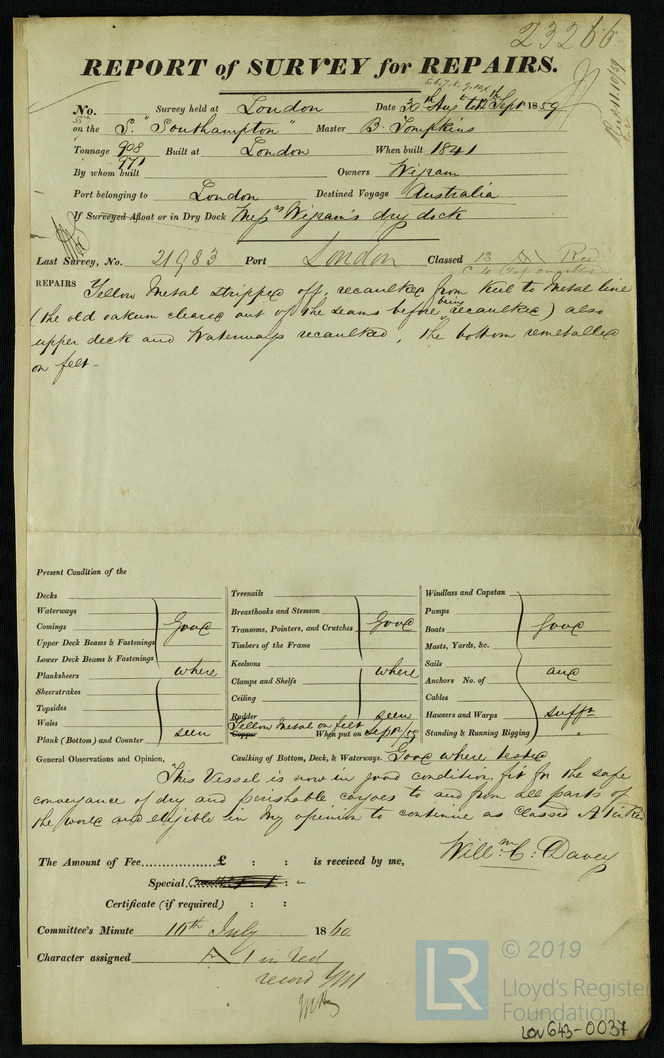 23266
REPORT of SURVEY for REPAIRS.
No. Survey held at London Date 30th Aus to 12th Sept 1859
on the S. "Southampton" Master B. Tompkins
Tonnage 908 Built at London When built 1841
971
By whom built Owners Wigram
Port belonging to London Destined Voyage Australia
If Surveyed Afloat or in Dry Dock Messrs Wigram's dry dock
Last Survey, No. 21983 Port London Classed 13 A Red
REPAIRS Yellow Metal stripped off, recaulked from keel to Metal line
(the old oakum cleared out of the seams before being recaulked) also
upper deck and Waterways recaulked, the bottom remetalled
on felt-
Present Condition of the
Decks
Waterways
Comings Good
Upper Deck Beams & Fastenings
Lower Deck Beams & Fastenings
Planksheers where
Sheerstrakes
Topsides
Wales
Plank (Bottom) and Counter seen
Treenails
Breasthooks and Stemson
Transoms, Pointers, and Crutches Good
Timbers of the Frame
Keelsons
Clamps and Shelfs where
Ceiling
Rudder seen
Yellow Metal on felt
Copper When put on Sept/59
Windlass and Capstan
Pumps
Boats Good
Masts, Yards, &c.
Sails
Anchors No. of and
Cables
Hawsers and Warps sufft
Standing & Running Rigging
General Observations and Opinion, Caulking of Bottom, Deck, & Waterways. Good where tested
This Vessel is now in good condition, fit for the safe
conveyance of dry and perishable cargoes to and from all parts of
the world and eligible in my opinion to continue as classed A 1 in Red
Willm C: Davey
The Amount of Fee.............£ : : is received by me,
Special : -
Certificate (if required) : :
Committee's Minute 10th July 1860
Character assigned A 1 in red
record
© 2019
LR
Lloyd's Register
Foundation
LON643-0037